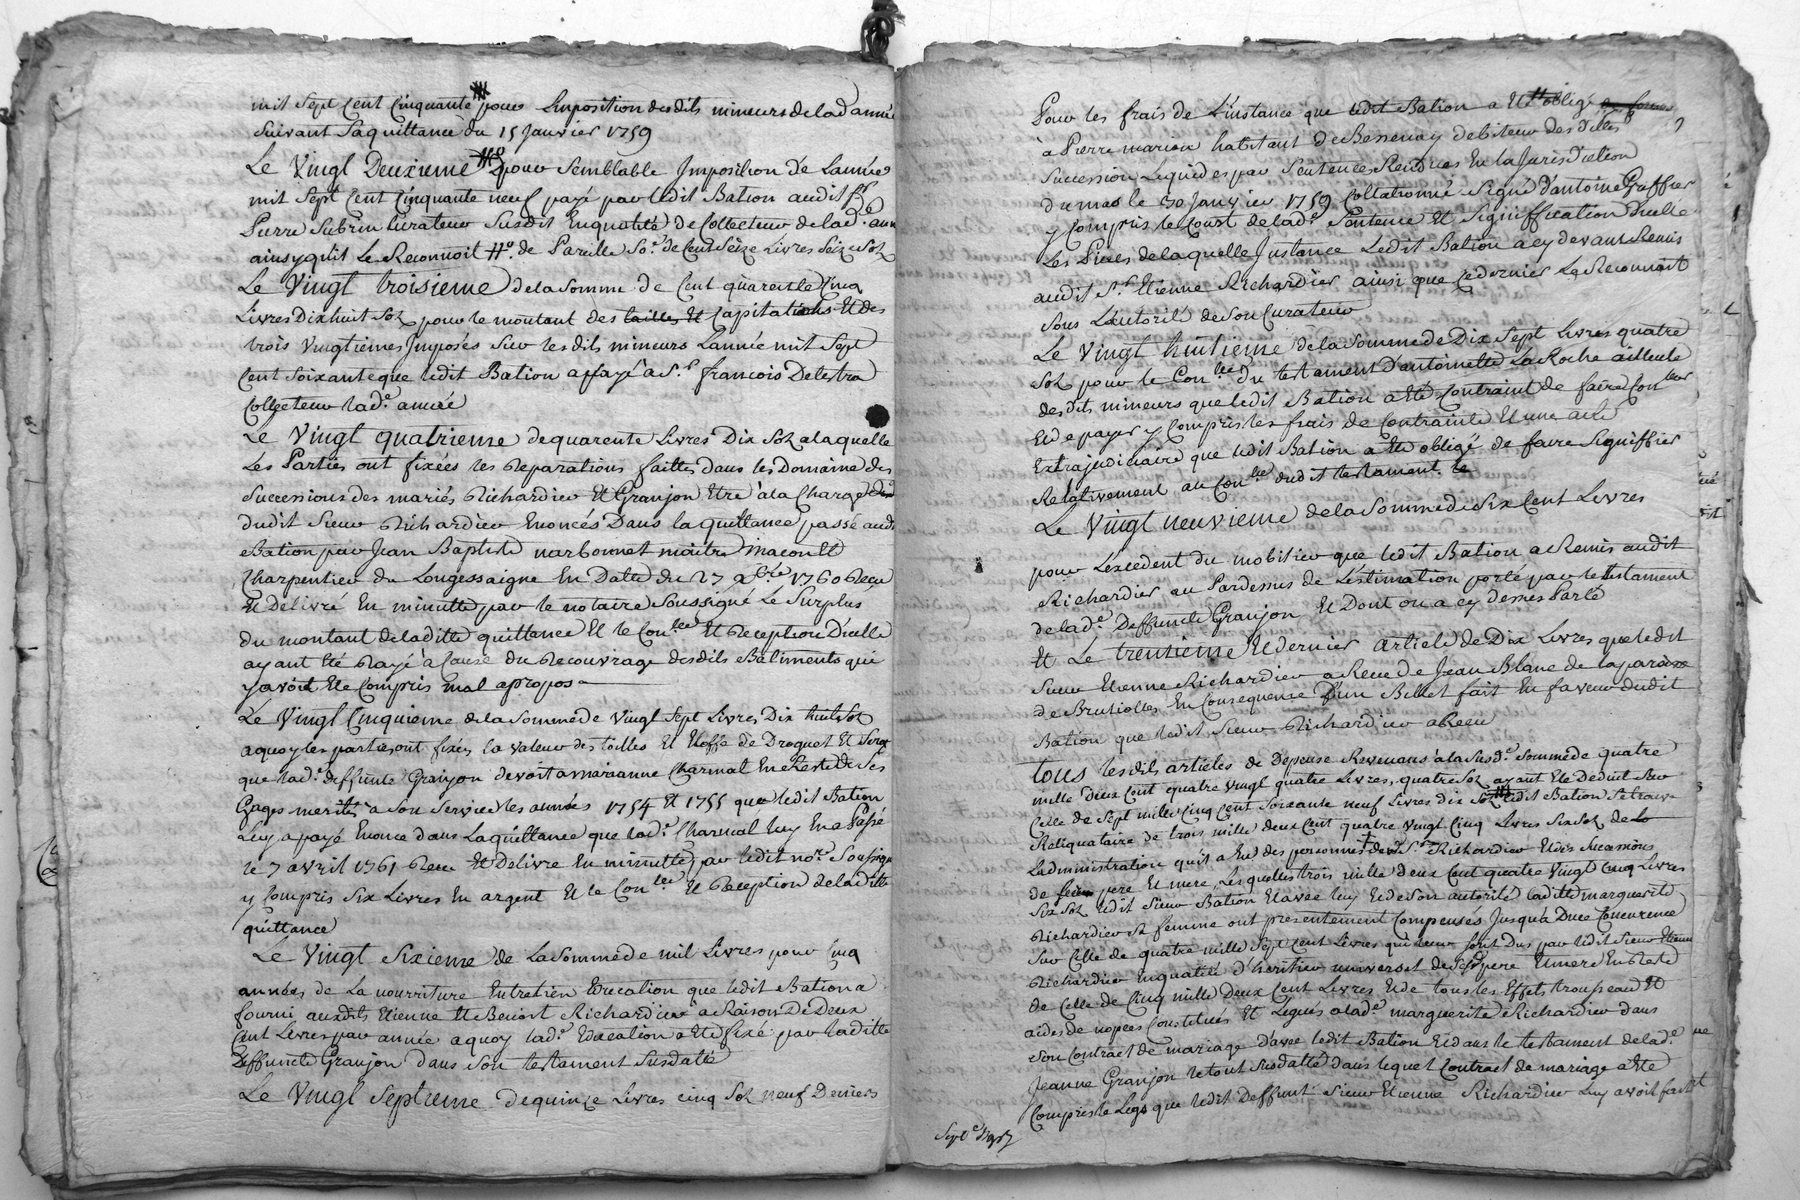 mil sept Cent Cinquante pour Limposition desdits mineurs de lad année
suivant sa quittance du 15 Janvier 1759
Le Vingt Deuxieme pour semblable Imposition de Lannée
mil sept Cent Cinquante neuf payé par ledit Bation audit Sr
Pierre Subrin Curateur susdit En qualité de Collecteur de lad. ann
ainsy qu'il Le Reconnoit de Pareille So.e de Cent Seize Livres Seize Solz
Le Vingt troisieme de la Somme de Cent quarente Cinq
Livres Dix huit Solz pour le montant des tailles Et Capitations Et des
trois Vingtiemes Imposés sur lesdits mineurs Lannée mil sept
Cent soixante que ledit Bation a payé a Sr francois Delestra
Collecteur lad.e année
Le Vingt quatrieme de quarente Livres Dix Solz a laquelle
Les Parties ont fixées les Reparations faittes dans les Domaine des
successions des mariés Richardier Et Granjon Etre à la Charge
dudit Sieur Richardier Enoncés Dans la quittance passé aud
Bation par Jean Baptiste narbonnet maitre macon Et
Charpentier du Longessaigne En Datte du 27 9bre 1760 Recu
Et Delivré En minutte par le notaire Soussigné Le Surplus
du montant de laditte quittance Et le Con.lle Et Reception D'icelle
ayant Eté Rayé à Cause du Recouvrage desdits Batiments qui
y avoit Ete Compris mal apropos
Le Vingt Cinquieme de la Somme de Vingt Sept Livres Dix huit Solz
a quoy les parties ont fixés la valeur des toilles Et Etoffe de Droguet Et Serge
que lad.e deffunte Granjon devoit a marianne Charmat En Reste de Ses
Gages merités a son Service les années 1754 Et 1755 que ledit Bation
Luy a payé Enoncé dans La quittance que lad.e Charmat luy En a Passé
le 7 avril 1761 Recu Et Delivré En minutte par ledit no.re Soussigné
y Compris Six Livres En argent Et le Con.lle Et Reception de laditte
quittance
Le Vingt Sixieme de La Somme de mil Livres pour Cinq
années de La nourriture Entretien Education que ledit Bation a
fourni auxdits Etienne Et Benoist Richardier à Raison De Deux
Cent Livres par année a quoy lad.e Education a Eté fixé par laditte
Deffuncte Granjon dans Son testament Susdatté
Le Vingt Septieme de quinze Livres cinq Solz neuf Deniers
Pour les frais de L'instance que ledit Bation a Eté obligé
à Pierre marion habitant de Bessenay debiteur desdittes
Succession Liquidés par Sentences Rendues En la Jurisdiction
du mas le 30 Janvier 1759 Collationné Signé d'antoine Greffier
y Compris le Coust de lad.e Sentence Et Signiffication D'icelle
Les Pieces de laquelle Instance Ledit Bation a cy devant Remis
audit Sr Etienne Richardier ainsi que Ce dernier Le Reconnoit
sous L'autorité de Son Curateur
Le Vingt huitieme de la Somme de Dix Sept Livres quatre
Solz pour le Con.lle Du testament D'antoinette La Roche ailleule
desdits mineurs que ledit Bation a Eté Contraint de faire Con.ller
Et de payer y Compris les frais de Contrainte Et une acte
Extrajudiciaire que ledit Bation a Ete obligé de faire Signiffier
Relativement au Con.lle dudit testament
Le Vingt neuvieme de la Somme de Six Cent Livres
pour L'excedent du mobilier que ledit Bation a Remis audit
Richardier au Pardessus de L'estimation porté par le testament
de lad.e Deffuncte Granjon Et Dont on a cy dessus Parlé
Et Le trentieme Et dernier Article de Dix Livres que ledit
Sieur Etienne Richardier a Recu de Jean Blanc de la paroisse
de Brusiolles En Consequence D'un Billet fait En faveur dudit
Bation que ledit Sieur Richardier a Recu
Tous lesdits articles de Depense Revenans à la Susd.e Somme de quatre
mille deux Cent quatre Vingt quatre Livres, quatre Solz ayant Ete Deduit Sur
Celle de Sept mille Cinq Cent Soixante neuf Livres dix Solz ledit Bation Se trouve
Reliquataire de trois mille deux Cent quatre Vingt Cinq Livres Six Solz de
Ladministration qu'il a Eu des personnes dud. Sr Richardier Et des Successions
de pere Et mere, Lesquelles trois mille deux Cent quatre Vingt Cinq Livres
Six Solz ledit Sieur Bation Et avec luy Et de Son autorité laditte marguerite
Richardier Sa femme ont presentement Compensés Jusqu'a Due Concurrence
Sur Celle de quatre mille Sept Cent Livres qui leur Sont Dus par ledit Sieur Etienne
Richardier En qualité d'heritier universel de Ses pere Et mere En Reste
de Celle de Cinq mille Deux Cent Livres Et de tous les Effets trousseau Et
aides de nopces Constitués Et Legués a lad.e marguerite Richardier dans
Son Contract de mariage d'avec ledit Bation Et dans le testament de lad.e
Jeanne Granjon le tout Susdatté dans lequel Contract de mariage a Eté
Compris le Legs que ledit Deffunt Sieur Etienne Richardier Luy avoit fait